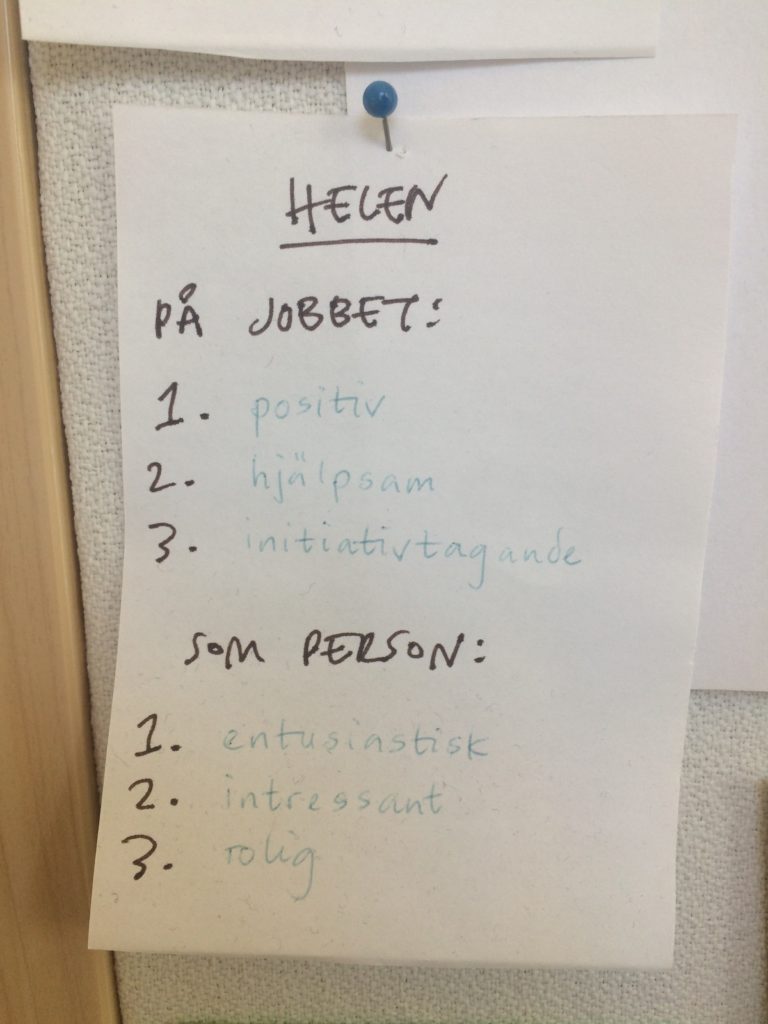 HELEN
PÅ JOBBET:
1. positiv
2. hjälpsam
3. initiativtagande
SOM PERSON:
1. entusiastisk
2. intressant
3. rolig